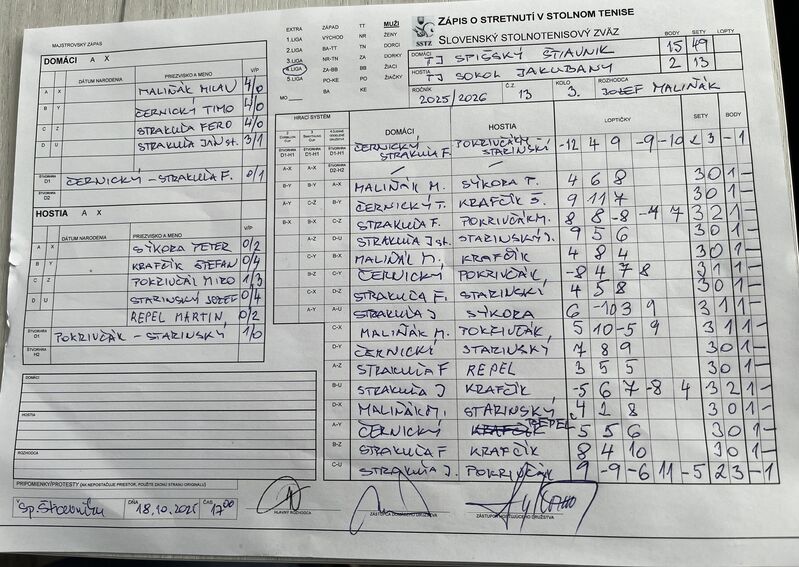 MAJSTROVSKÝ ZÁPAS
ZÁPIS O STRETNUTÍ V STOLNOM TENISE
SLOVENSKÝ STOLNOTENISOVÝ ZVÄZ
SSTZ
EXTRA ZÁPAD TT MUŽI
1.LIGA VÝCHOD NR ŽENY
2.LIGA BA-TT TN DORCI
3.LIGA NR-TN ZA DORKY
4.LIGA ZA-BB BB ŽIACI
5.LIGA PO-KE PO ŽIAČKY
MO BA KE
BODY SETY LOPTY
DOMÁCI TJ SPIŠSKÝ ŠTIAVNIK 15 49
HOSTIA TJ SOKOL JAKUBANY 2 13
ROČNÍK 2025/2026 Č.Z. 13 KOLO 3. ROZHODCA JOZEF MALIŇÁK
DOMÁCI A X
DÁTUM NARODENIA PRIEZVISKO A MENO V/P
A X MALIŇÁK MILAN 4/0
B Y ČERNICKÝ TIMO 4/0
C Z STRAKUĽA FERO 4/0
D U STRAKUĽA JÁN St. 3/1
ŠTVORHRA D1 ČERNICKÝ - STRAKUĽA F. 0/1
HOSTIA A X
DÁTUM NARODENIA PRIEZVISKO A MENO V/P
A X SÝKORA PETER 0/2
B Y KRAFČÍK ŠTEFAN 0/4
C Z POKRIVČÁK MIRO 1/3
D U STARINSKÝ JOZEF 0/4
REPEL MARTIN 0/2
ŠTVORHRA D1 POKRIVČÁK - STARINSKÝ 1/0
ŠTVORHRA H2
HRACÍ SYSTÉM DOMÁCI HOSTIA LOPTIČKY SETY BODY
D1-H1 D1-H1 D1-H1 ČERNICKÝ STRAKUĽA F. POKRIVČÁK STARINSKÝ -12 4 9 -9 -10 2 3 - 1
A-X A-X D2-H2 / /
B-Y B-Y A-X MALIŇÁK M. SÝKORA P. 4 6 8 3 0 1 -
A-Y C-Z B-Y ČERNICKÝ T. KRAFČÍK Š. 9 11 7 3 0 1 -
B-X B-X C-Z STRAKUĽA F. POKRIVČÁK M. 8 8 -8 -4 7 3 2 1 -
A-Z D-U STRAKUĽA J st. STARINSKÝ J. 9 5 6 3 0 1 -
C-Y B-X MALIŇÁK M. KRAFČÍK 4 8 4 3 0 1 -
B-Z C-Y ČERNICKÝ POKRIVČÁK -8 4 7 8 3 1 1 -
C-X D-Z STRAKUĽA F. STARINSKÝ 4 5 8 3 0 1 -
A-Y A-U STRAKUĽA J SÝKORA 6 -10 3 9 3 1 1 -
C-X MALIŇÁK M. POKRIVČÁK 5 10 -5 9 3 1 1 -
D-Y ČERNICKÝ STARINSKÝ 7 8 9 3 0 1 -
A-Z STRAKUĽA F REPEL 3 5 5 3 0 1 -
B-U STRAKUĽA J KRAFČÍK -5 6 7 -8 4 3 2 1 -
D-X MALIŇÁK M. STARINSKÝ 4 2 8 3 0 1 -
A-Y ČERNICKÝ KRAFČÍK REPEL 5 5 6 3 0 1 -
B-Z STRAKUĽA F KRAFČÍK 8 4 10 3 0 1 -
C-U STRAKUĽA J. POKRIVČÁK 9 -9 -6 11 -5 2 3 - 1
DOMÁCI
HOSTIA
ROZHODCA
PRIPOMIENKY/PROTESTY (AK NEPOSTAČUJE PRIESTOR, POUŽITE ZADNÚ STRANU ORIGINÁLU)
V Sp. Štiavniku DŇA 18.10.2025 ČAS 17:00
HLAVNÝ ROZHODCA ZÁSTUPCA DOMÁCEHO DRUŽSTVA ZÁSTUPCA HOSŤUJÚCEHO DRUŽSTVA